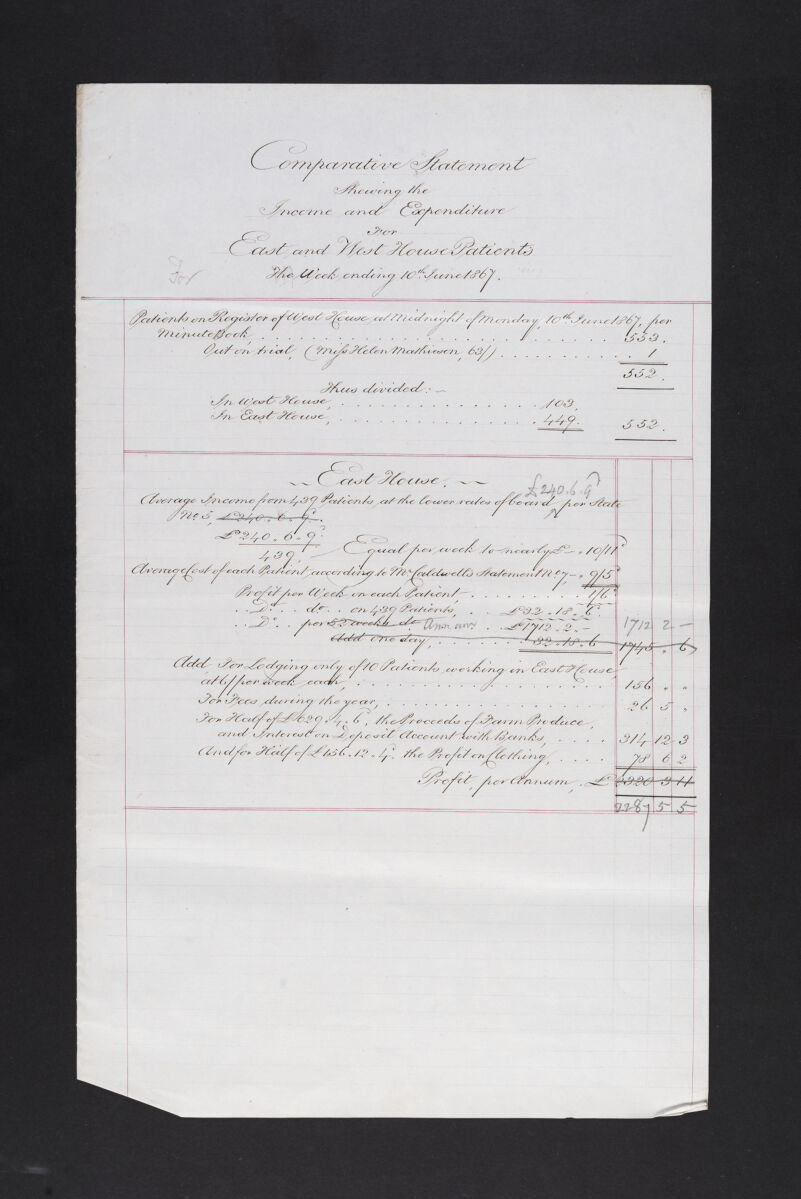 Comparative Statement
Shewing the
Income and Expenditure
For
East and West House Patients
For
The Week ending 10th June 1867.
Patients on Register of West House, at Midnight of Monday, 10th June 1867, per
Minute Book, 553.
Out on trial, (Miss Helen Mathieson, 63/) 1
552.
Thus divided:~
In West House, 103.
In East House, 449. 552.
~~ East House. ~~
£240.6.9
Average Income from 439 Patients, at the lower rates of board, per State
No. 5, £240.6.9.
£240.6.9
439, Equal per week to nearly £-.10/11
Average Cost of each Patient, according to Mr Caldwell's Statement No. 7, -.9/5
Profit per Week on each Patient, 1/6
Do. do. on 439 Patients, £32.18.6
Do. per 52 weeks do Annum £1712.2.- 1712 2 -
Add one day, 32.18.6 1745 . 6
Add For Lodging only of 10 Patients working in East House,
at 6/ per week each, 156 " "
For Fees during the year, 26 5 "
For Half of £629.4.6, the Proceeds of Farm Produce,
and Interest on Deposit Account with Banks, 314 12 3
And for Half of £156.12.4, the Profit on Clothing, 78 6 2
Profit, per Annum, £2320 3 11
2287 5 5